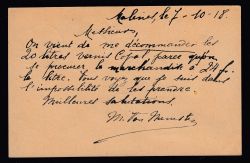 Malines, le 7-10-18.
Messieurs,
On vient de me décommander les
20 litres vernis Copal parce qu'on
se procurer la marchandise à 24 f.
le litre. Vous voyez que je suis dans
l'impossibilité de les prendre.
Meilleures salutations.
M. Van